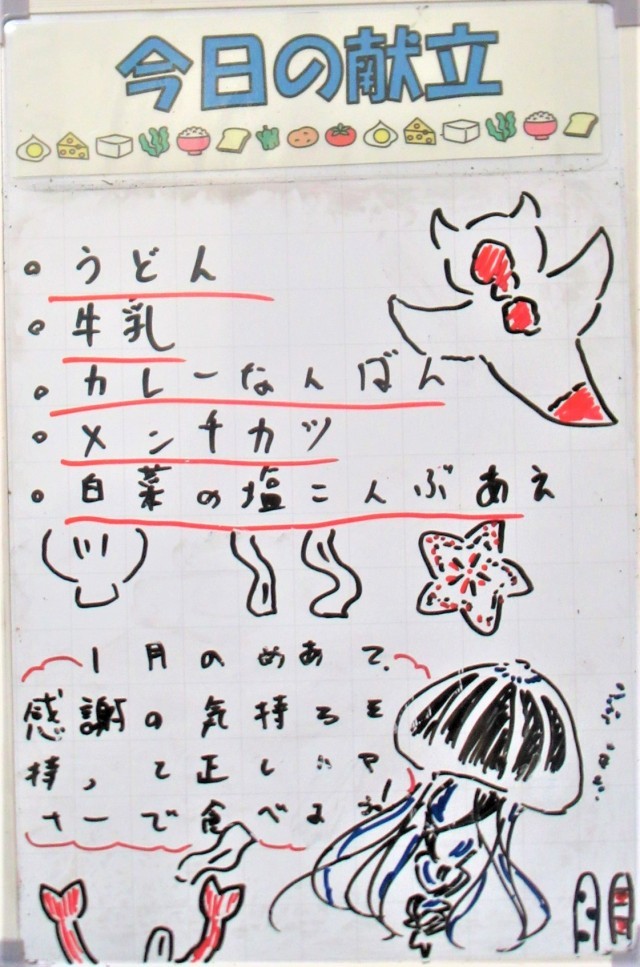 今日の献立
うどん
牛乳
カレーなんばん
メンチカツ
白菜の塩こんぶあえ
1月のめあて
感謝の気持ちを
持って正しいマ
ナーで食べよう